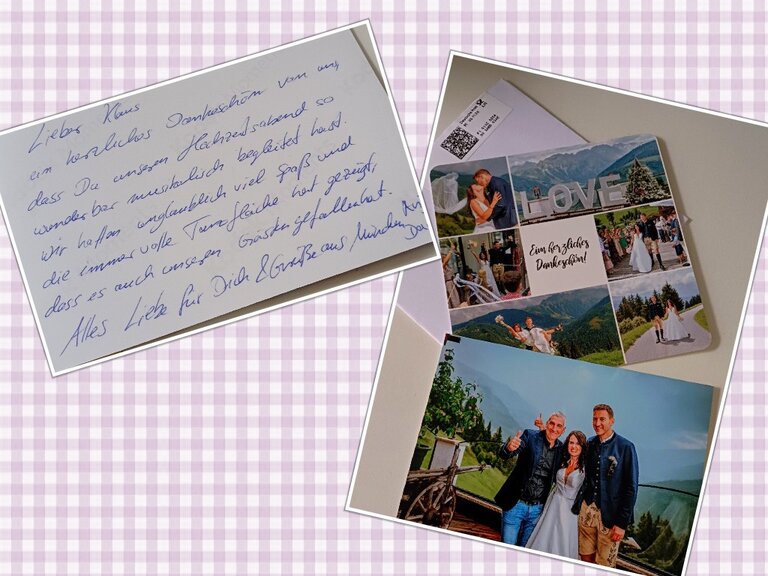 Lieber Klaus
ein herzliches Dankeschön von uns,
dass Du unseren Hochzeitsabend so
wunderbar musikalisch begleitet hast.
Wir hatten unglaublich viel Spaß und
die immer volle Tanzfläche hat gezeigt,
dass es auch unseren Gästen gefallen hat.
Alles Liebe für Dich & Grüße aus München
LOVE
Ein herzliches
Dankeschön!